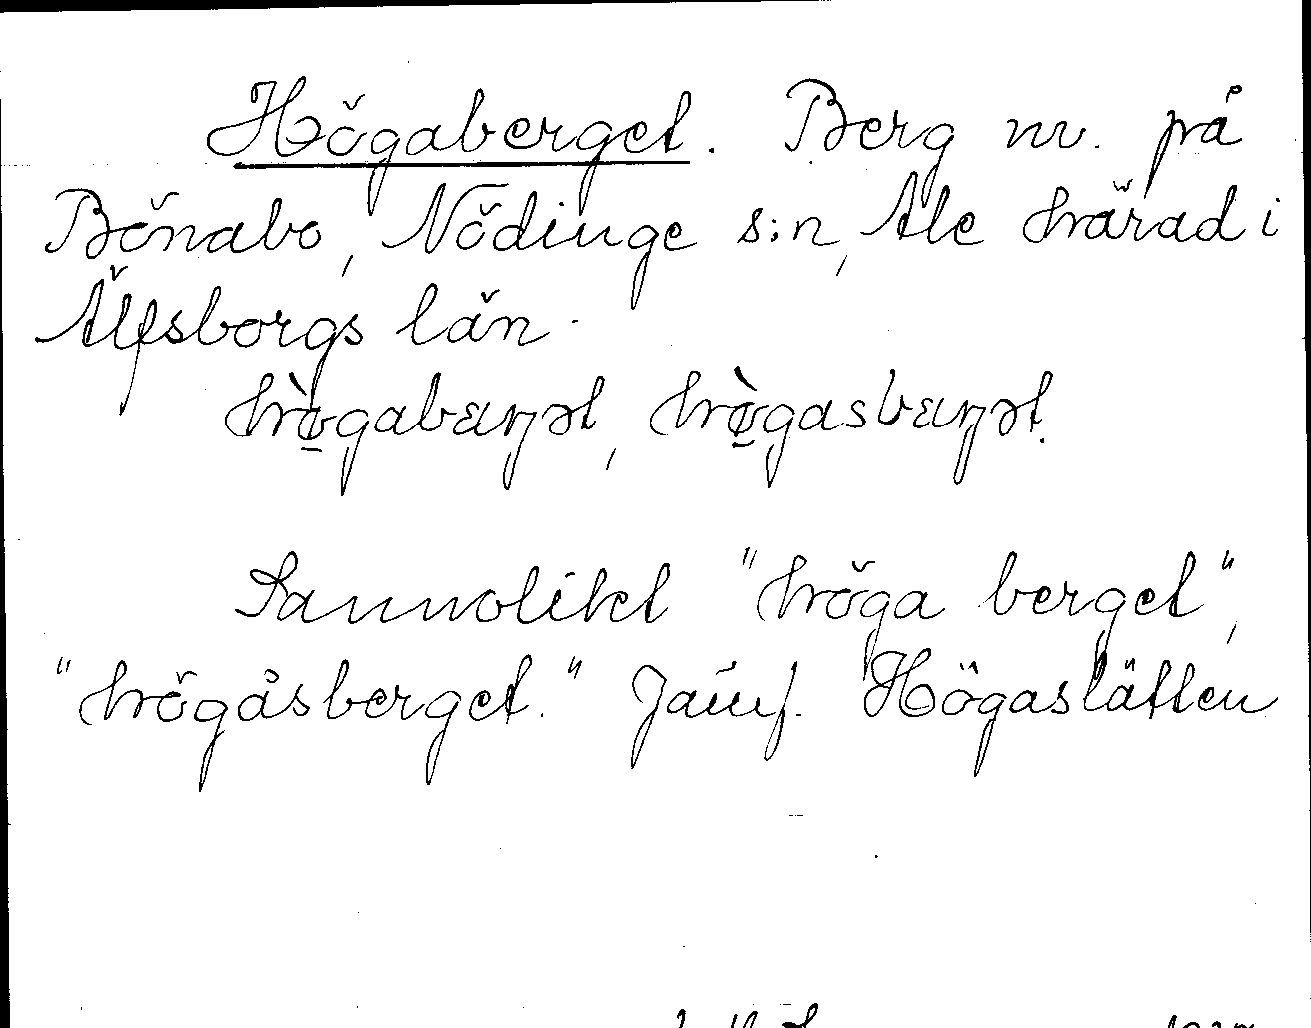 Högaberget. Berg nv. på
Bönabo, Nödinge s:n, Ale härad i
Älfsborgs län.
hø̀gabæŋət, hø̀gasbæŋət.
Sannolikt "höga berget",
"högåsberget." Jämf. Högaslätten